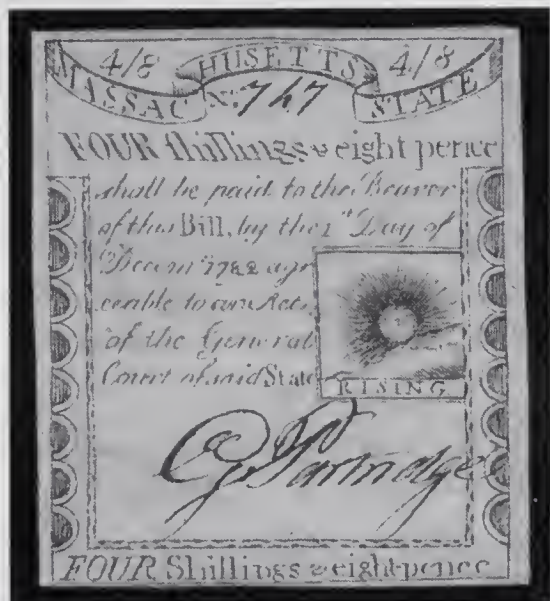 4/8 HUSETTS 4/8
MASSAC No: 747 STATE
FOUR shillings & eight pence
shall be paid to the Bearer
of this Bill, by the 1st Day of
Decemr 1782 agre
eable to an Act
of the General
Court of said State
RISING
G Partridge
FOUR Shillings & eight-pence